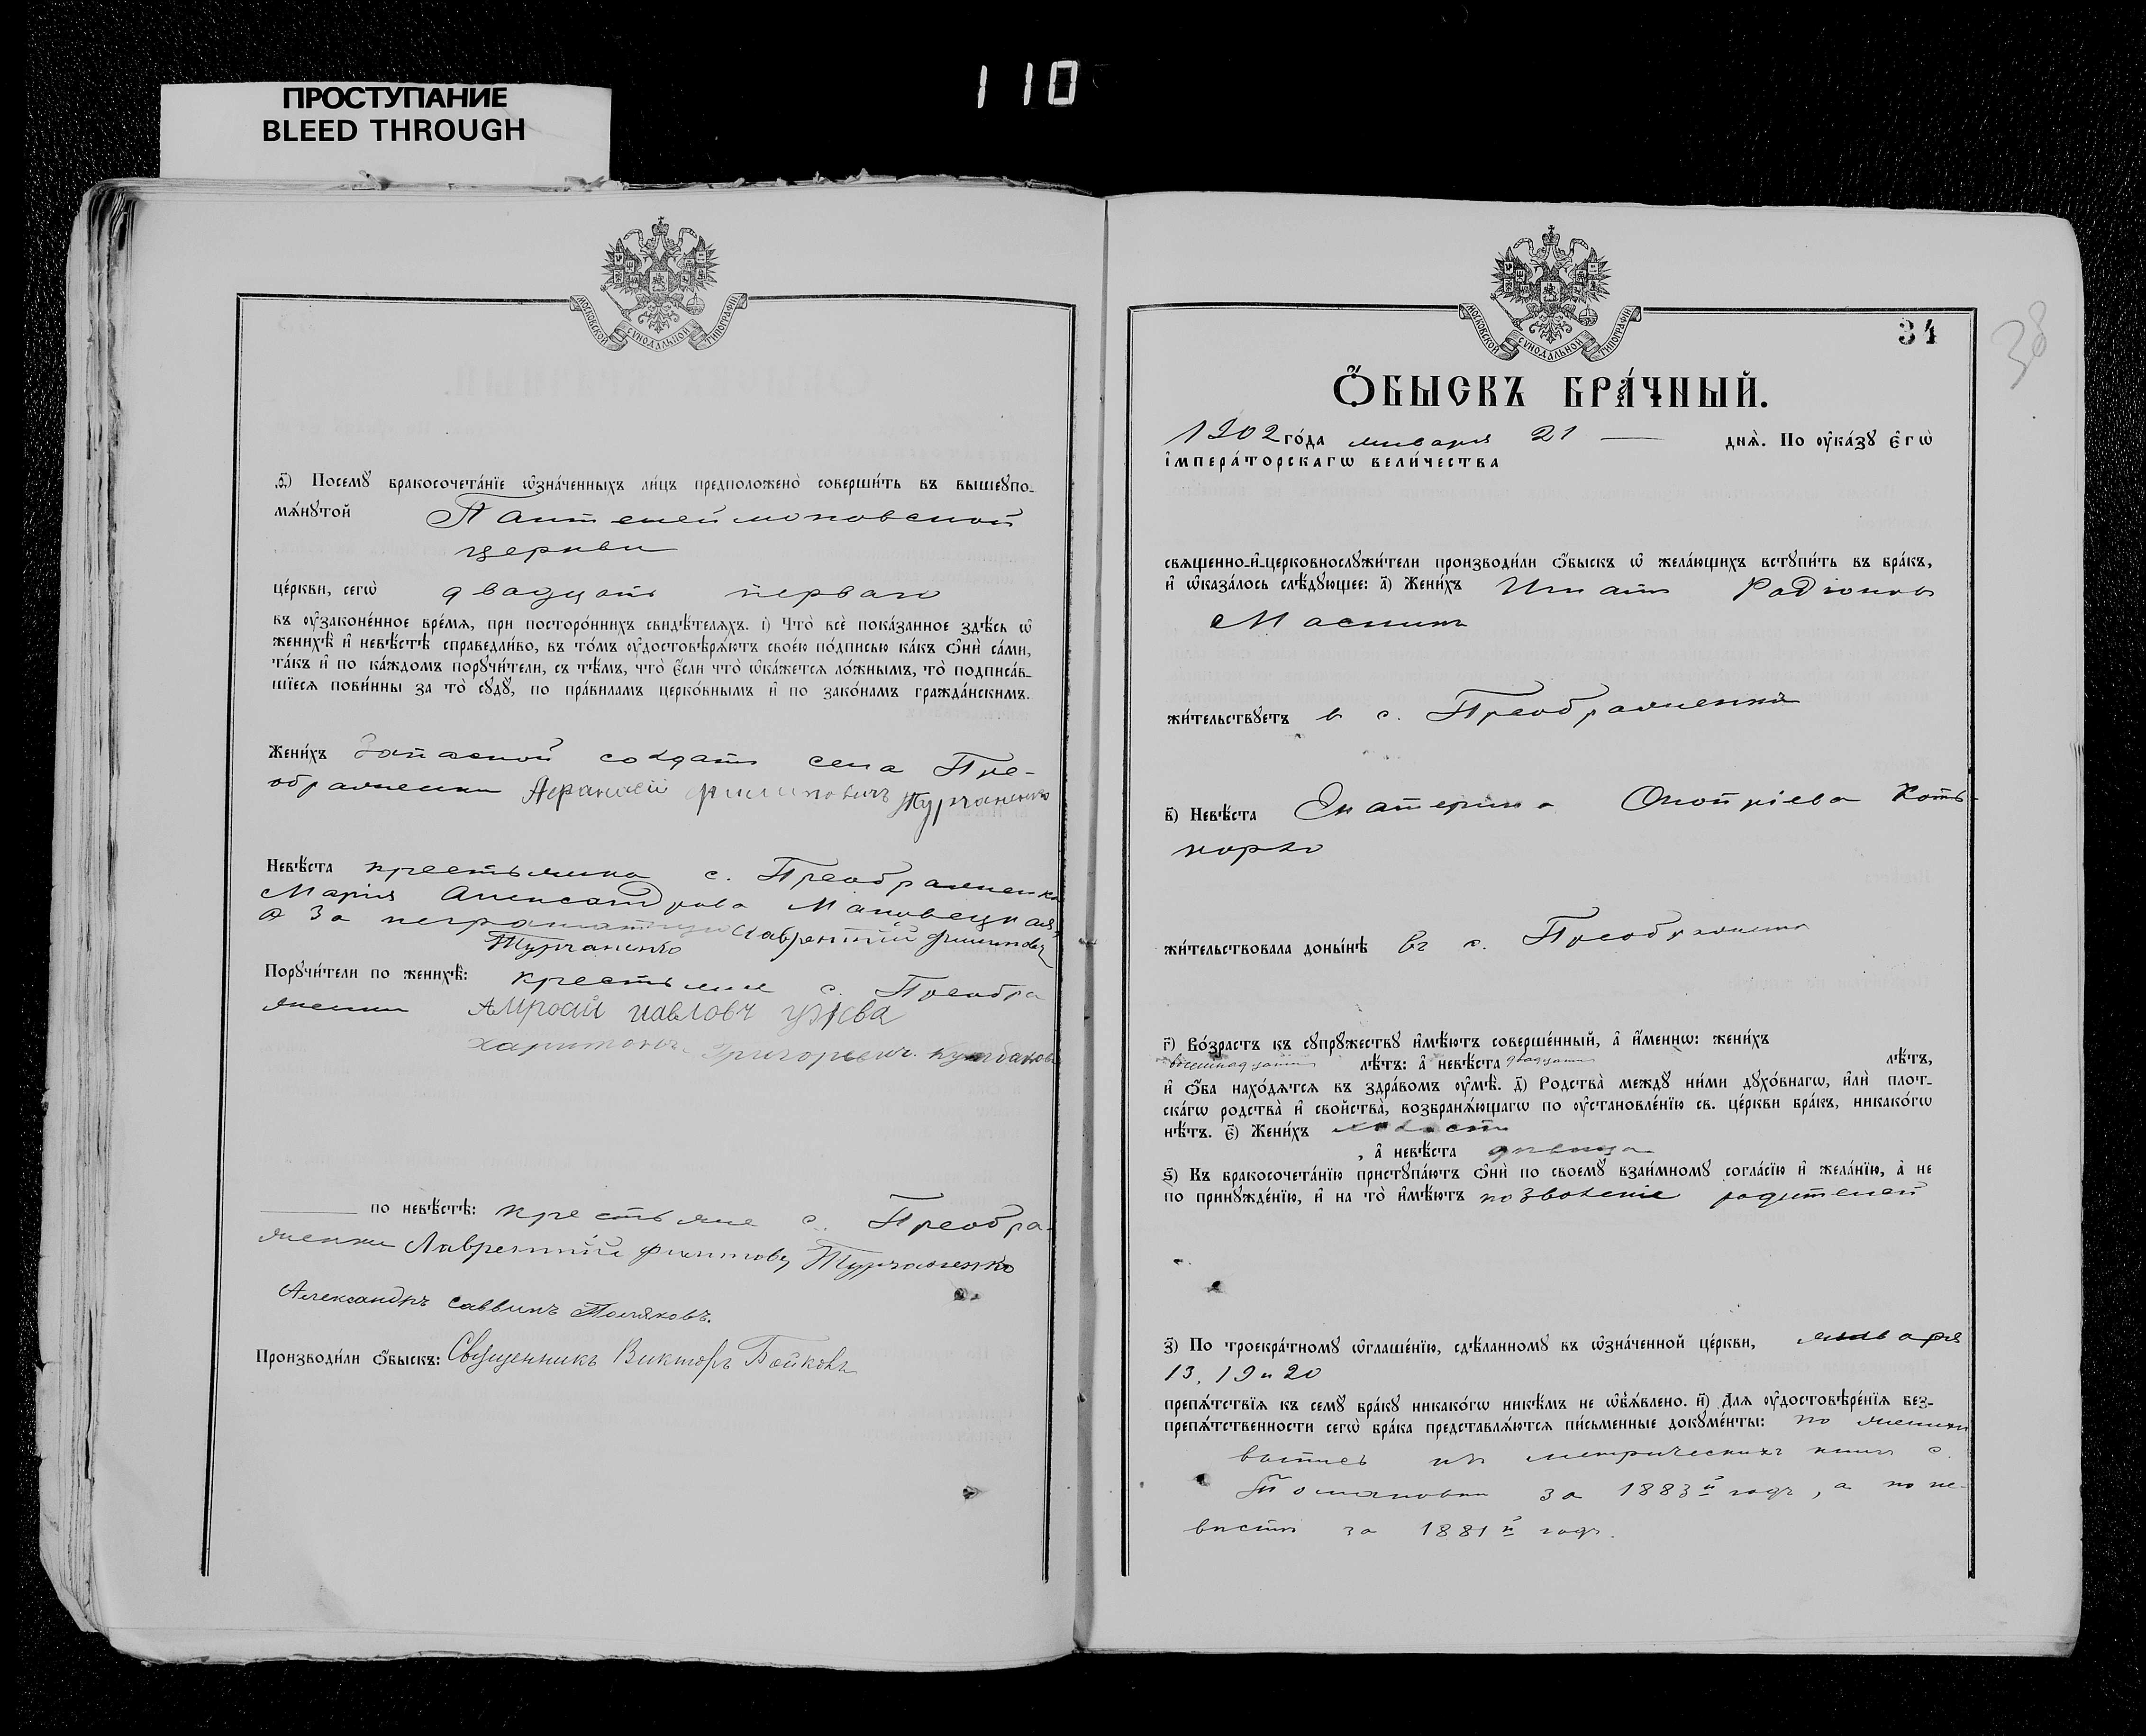 110
ПРОСТУПАНИЕ
BLEED THROUGH
МОСКОВСКОЙ СѴНОДАЛЬНОЙ ТИПОГРАФІИ
Ѳ҃) Посемꙋ̀ бракосочета́нїе ѡ҆зна́ченныхъ ли́цъ предположено̀ соверши́ть въ вышеꙋпо-
мѧ́нꙋтой Пантелеймоновской
церкви
це́ркви, сегѡ̀ двадцать перваго
въ оу҆законе́нное вре́мѧ, при посторо́ннихъ свидѣ́телѧхъ. і҃) Что̀ всѐ пока́занное здѣ́сь ѡ҆
женихѣ̀ и҆ невѣ́стѣ справедли́во, въ то́мъ оу҆достовѣрѧ́ютъ свое́ю по́дписью ка́къ ѻ҆нѝ са́ми,
та́къ и҆ по ка́ждомъ порꙋчи́тели, съ тѣ́мъ, что̀ є҆́сли что̀ ѡ҆ка́жетсѧ ло́жнымъ, то̀ подписа́в-
шїесѧ пови́нны за то̀ сꙋдꙋ̀, по пра́виламъ церко́внымъ и҆ по зако́намъ гражда́нскимъ.
Жени́хъ Запасной солдатъ села Пре-
ображенки Афанасій Филиповичъ Турчаненко
Невѣ́ста крестьянка с. Преображенки
Марія Александрова Маковецкая,
а за неграмотную Лаврентій Филиповъ
Турчаненко
Порꙋчи́тели по женихѣ̀: крестьяне с. Преобра
женки Амросій павловъ
харитонъ Григорьевъ
по невѣ́стѣ: крестьяне с. Преобра-
женки Лаврентій Филиповъ Турчаненко
Александръ Саввинъ Поляковъ.
Производи́ли ѻ҆́быскъ: Священникъ Викторъ Бойковъ
МОСКОВСКОЙ СѴНОДАЛЬНОЙ ТИПОГРАФІИ
34
38
Ѻ҆́БЫСКЪ БРА́ЧНЫЙ.
1902 го́да января 21 — днѧ̀. По оу҆ка́зꙋ є҆гѡ̀
і҆мпера́торскагѡ вели́чества
свѧщенно-и҆-церковнослꙋжи́тели производи́ли ѻ҆́быскъ ѡ҆ жела́ющихъ встꙋпи́ть въ бра́къ,
и҆ ѡ҆каза́лось слѣ́дꙋющее: а҃) Жени́хъ Игнатъ Родіоновъ
Маснинъ
жи́тельствꙋетъ въ с. Преображенкѣ
в҃) Невѣ́ста Екатерина Онопріева Коть-
жи́тельствовала доны́нѣ въ с. Преображенкѣ
г҃) Во́зрастъ къ сꙋпрꙋ́жествꙋ и҆мѣ́ютъ соверше́нный, а҆ и҆́меннѡ: жени́хъ
восемнадцати лѣ́тъ: а҆ невѣ́ста двадцати лѣ́тъ,
и҆ ѻ҆́ба нахо́дѧтсѧ въ здра́вомъ оу҆мѣ̀. д҃) Родства̀ междꙋ ни́ми дꙋхо́внагѡ, и҆лѝ плот-
ска́гѡ родства̀ и҆ свойства̀, возбранѧ́ющагѡ по оу҆становле́нїю св. це́ркви бра́къ, никако́гѡ
нѣ́тъ. є҃) Жени́хъ холостъ
, а҆ невѣ́ста дѣвица
ѕ҃) Къ бракосочета́нїю пристꙋпа́ютъ ѻ҆нѝ по своемꙋ̀ взаи́мномꙋ согла́сїю и҆ жела́нїю, а҆ не
по принꙋжде́нїю, и҆ на то̀ и҆мѣ́ютъ позволеніе родителей
з҃) По троекра́тномꙋ ѡ҆глаше́нїю, сдѣ́ланномꙋ въ ѡ҆зна́ченной це́ркви, января
13, 19 и 20
препѧ́тствїѧ къ семꙋ̀ бра́кꙋ никако́гѡ никѣ́мъ не ѡ҆б̾ѧ́влено. и҃) Длѧ оу҆достовѣре́нїѧ без-
препѧ́тственности сегѡ̀ бра́ка представлѧ́ютсѧ пи́сьменные докꙋме́нты: по женихѣ
выпись изъ метрическихъ книгъ с.
за 1883й годъ, а по не-
вѣстѣ за 1881й годъ.